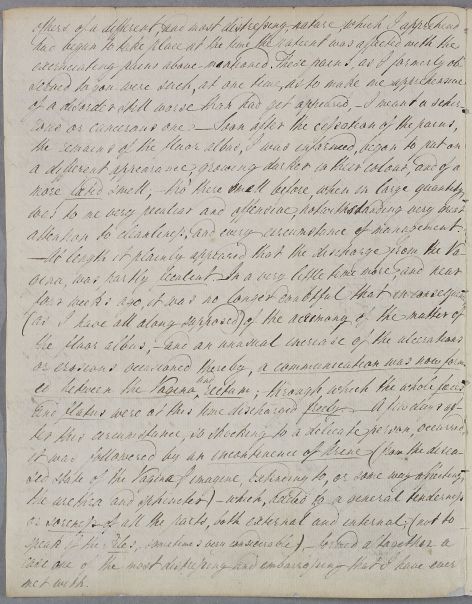 others of a different, and most distressing, nature, which I apprehend
had begun to take place at the time the Patient was affected with the
excruciating pains above-mentioned. These pains, as I formerly ob-
served to you were such, at one time, as to make me apprehensive
of a disorder still worse than had yet appeared, – I meant a schir-
rous or cancerous one. – Soon after the cessation of the pains,
the remains of the fluor albus, I was informed, began to put on
a different appearance, growing darker in their colour, and of a
more smell, – tho' there smell before, when in large quantity,
was to me very peculiar and offensive, notwithstanding very great
attention to cleanliness, and every circumstance of management.
– At length it plainly appeared that the discharge from the Va-
gina, was partly feculent. In a very little time more, and near
four weeks ago, it was no longer doubtful that in consequence
(as I have all along supposed) of the acrimony of the matter of
the fluor albus, – and an unusual increase of the ulcerations
or erosions occasioned thereby, a communication was now form-
ed between the Vagina and Rectum; through which the whole faeces
and flatus were at this time discharged freely. A few days af-
ter this circumstance, so shocking to a delicate person, occurred
it was followed by an incontinence of Urine (from the disea-
sed state of the Vagina I imagine, extending to, or some way affecting
the urethra and sphincter) – which, added to a general tenderness
or soreness of all the parts, both external and internal, (not to
speak of the Piles, sometimes very considerable) – formed altogether a
case one of the most distressing and embarrassing that I have ever
met with.